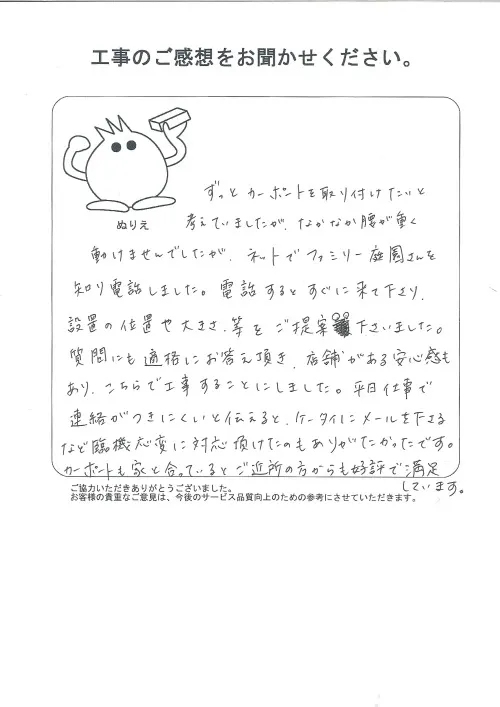 工事のご感想をお聞かせください。
ぬりえ
ずっとカーポートを取り付けたいと
考えていましたが、なかなか腰が重く
動けませんでしたが、ネットでファミリー庭園さんを
知り電話しました。電話するとすぐに来て下さり、
設置の位置や大きさ、等をご提案下さいました。
質問にも適格にお答え頂き、店舗がある安心感も
あり、こちらで工事することにしました。平日仕事で
連絡がつきにくいと伝えると、ケータイにメールを下さる
など臨機応変に対応頂けたのもありがたかったです。
カーポートも家と合っているとご近所の方からも好評で満足
しています。
ご協力いただきありがとうございました。
お客様の貴重なご意見は、今後のサービス品質向上のための参考にさせていただきます。